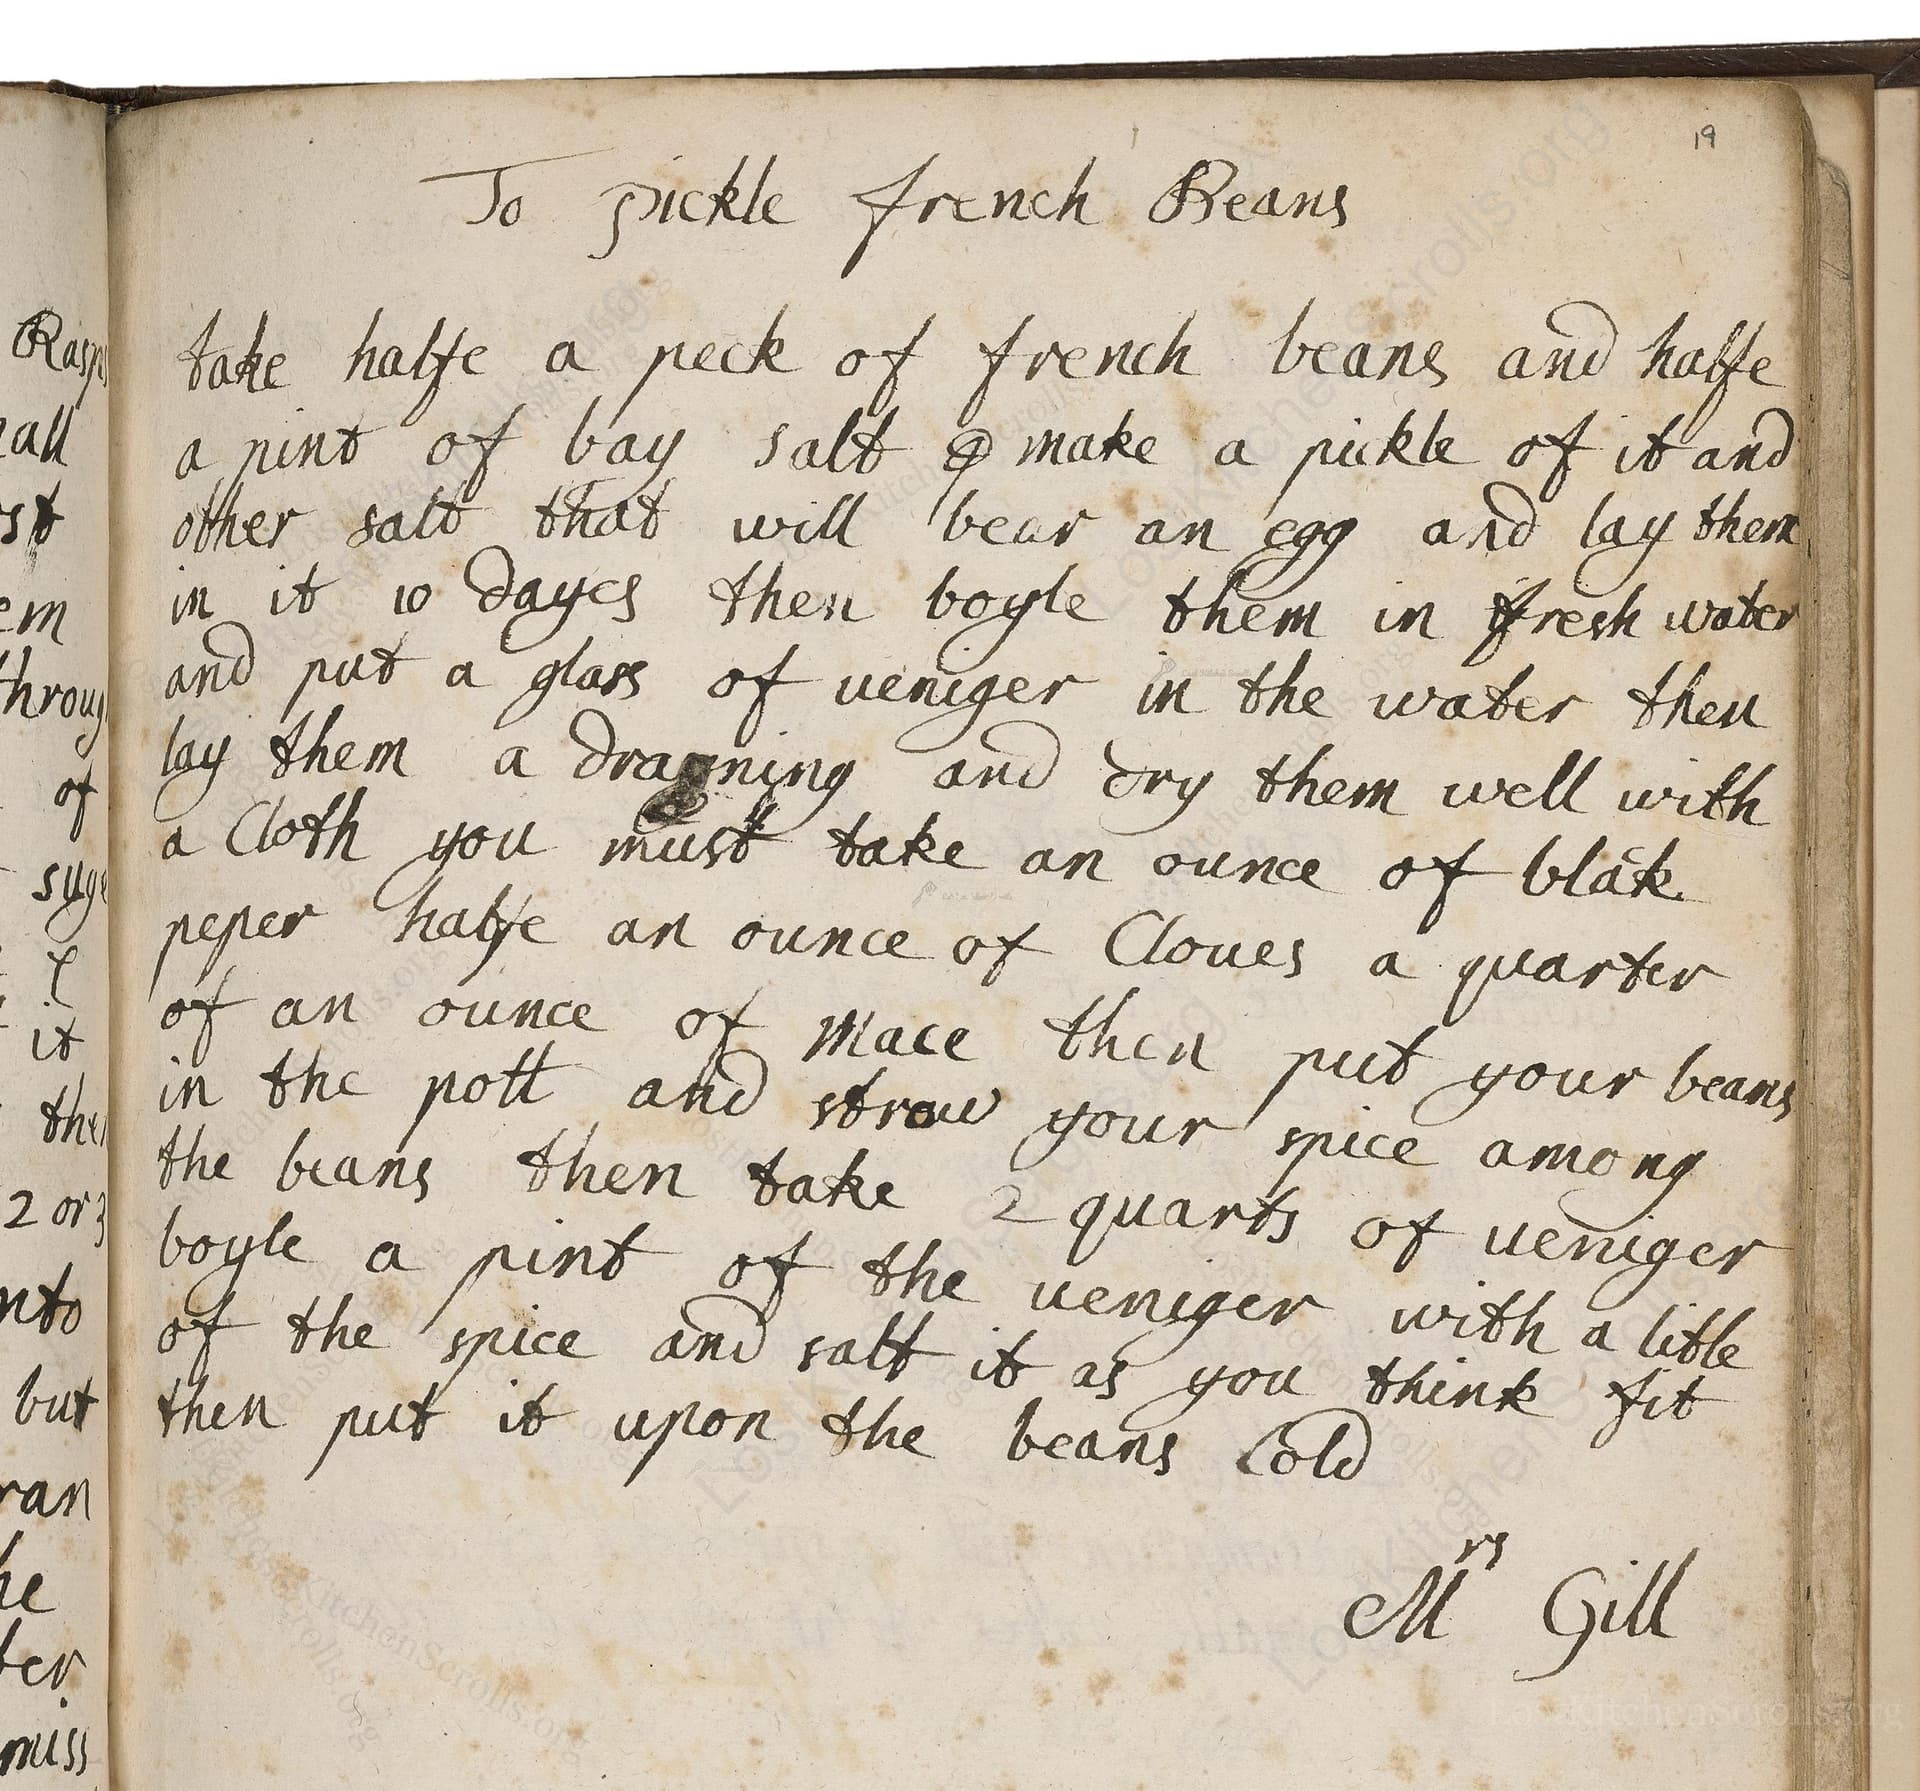 19
To pickle french Beans
take halfe a peck of french beans and halfe
a pint of bay salt make a pickle of it and
other salt that will bear an egg and lay them
in it 10 dayes then boyle them in fresh water
and put a glass of veniger in the water then
lay them a drayning and dry them well with
a Cloth you must take an ounce of blak
peper halfe an ounce of Cloues a quarter
of an ounce of Mace then put your beans
in the pott and strow your spice among
the beans then take 2 quarts of ueniger
boyle a pint of the ueniger with a litle
of the spice and salt it as you think fit
then put it upon the beans Cold
Mrs Gill
all
st
em
throug
of
suge
it
the
2 or 3
nto
but
ran
he
ter
miss
LostKitchenScrolls.org